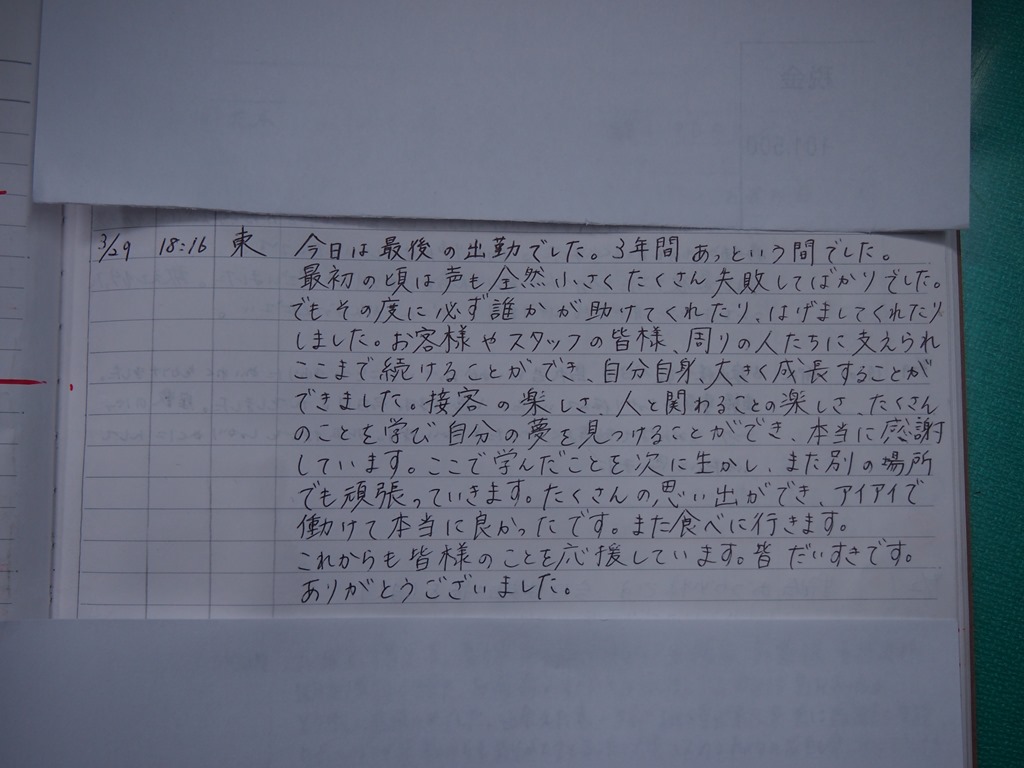 3/29 18:16 東 今日は最後の出勤でした。3年間あっという間でした。
最初の頃は声も全然小さくたくさん失敗してばかりでした。
でもその度に必ず誰かが助けてくれたり、はげましてくれたり
しました。お客様やスタッフの皆様、周りの人たちに支えられ
ここまで続けることができ、自分自身、大きく成長することが
できました。接客の楽しさ、人と関わることの楽しさ、たくさん
のことを学び自分の夢を見つけることができ、本当に感謝
しています。ここで学んだことを次に生かし、また別の場所
でも頑張っていきます。たくさんの思い出ができ、アイアイで
働けて本当に良かったです。また食べに行きます。
これからも皆様のことを応援しています。皆だいすきです。
ありがとうございました。